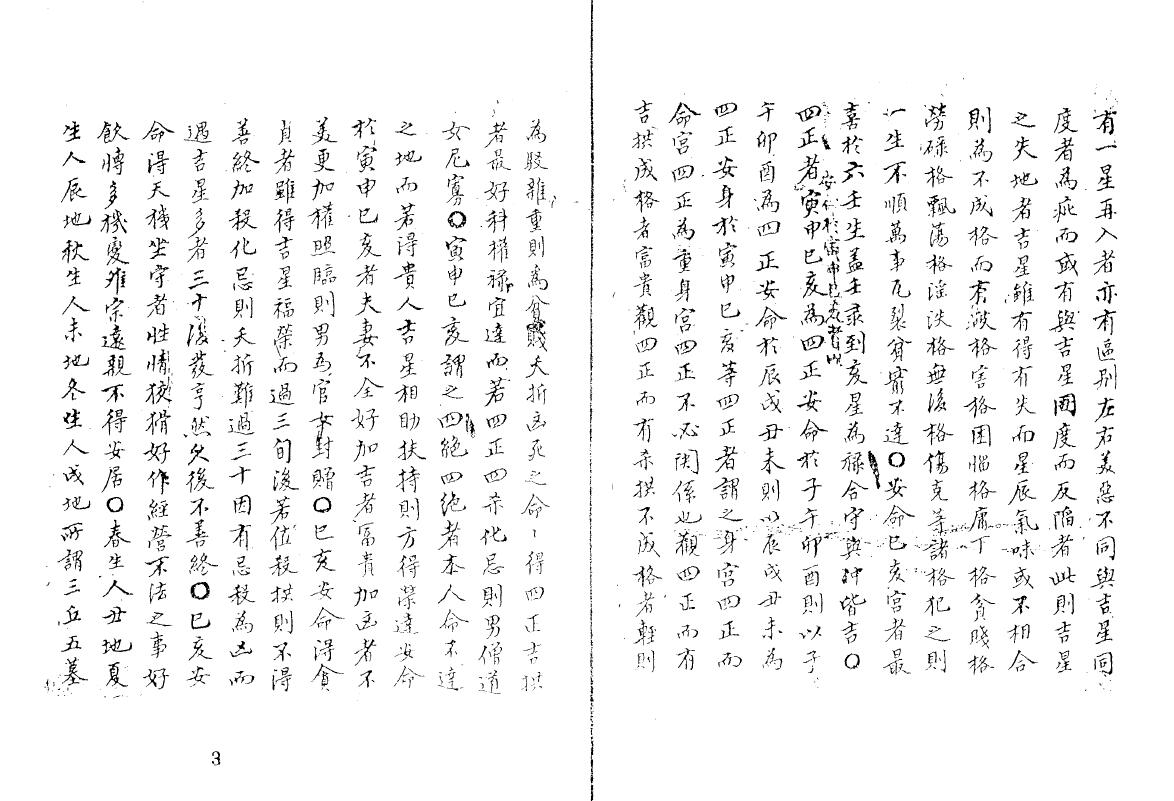 有一星再入者亦有區别左右美惡不同與吉星同
度者為疵而或有與吉星同度而反陷者此則吉星
之失地者吉星雖有得有失而星辰氣味或不相合
則為不成格而有破格害格困惱格庸下格貪賤格
勞碌格飄蕩格淫泆格無後格傷克等諸格犯之則
一生不順萬事瓦裂貧窮不達○安命巳亥宮者最
喜於六壬生盖壬录到亥星為禄合守與冲皆吉○
四正者寅申巳亥為四正安命於子午卯酉則以子
安命於寅申巳亥者以
午卯酉為四正安命於辰戌丑未則以辰戌丑未為
四正安身於寅申巳亥等四正者謂之身宮四正而
命宮四正為重身宮四正不必関係也觀四正而有
吉拱成格者富貴觀四正而有杀拱不成格者輕則
為股雜重則為貧賤夭折凶死之命〻得四正吉拱
者最好科權禄宜達而若四正四杀化忌則男僧道
女尼寡○寅申巳亥謂之四絕四绝者本人命不達
之地而若得貴人吉星相助扶持則方得榮達安命
於寅申巳亥者夫妻不全好加吉者富貴加凶者不
美更加權照臨則男為官女封贈○巳亥安命得貪
貞者雖得吉星福榮而過三旬後若位殺拱則不得
善終加殺化忌則夭折難過三十因有忌殺為凶而
遇吉星多者三十後發亨然久後不善終○巳亥安
命得天機坐守者性情狡猾好作經營不法之事好
飲博多機变难宗遠親不得安居○春生人丑地夏
生人辰地秋生人未地冬生人戌地所謂三丘五墓
3